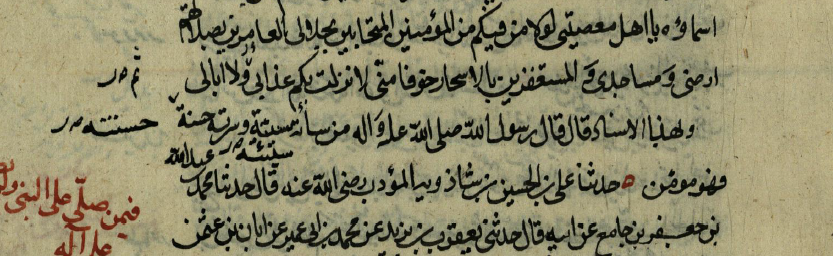 اسماؤه يا اهل معصيتي لولا من فيكم من المؤمنين المتحابين بجلالي العامرين بصلاتهم
ارضي ومساجدي و المستغفرين بالاسحار خوفا مني لانزلت بكم عذابي ولا ابالي
ثم
وبهذا الاسناد قال قال رسول الله صلى الله عليه واله من ساءته سيئة وسرته حسنة
حسنته
سيئته
فهو مؤمن ه حدثنا علي بن الحسين بن شاذويه المؤدب رضي الله عنه قال حدثنا محمد
عبد الله
بن جعفر بن جامع عن ابيه قال حدثني يعقوب بن يزيد عن محمد بن ابي عمير عن ابان بن عثمن
فيمن صلى على النبي
على اله